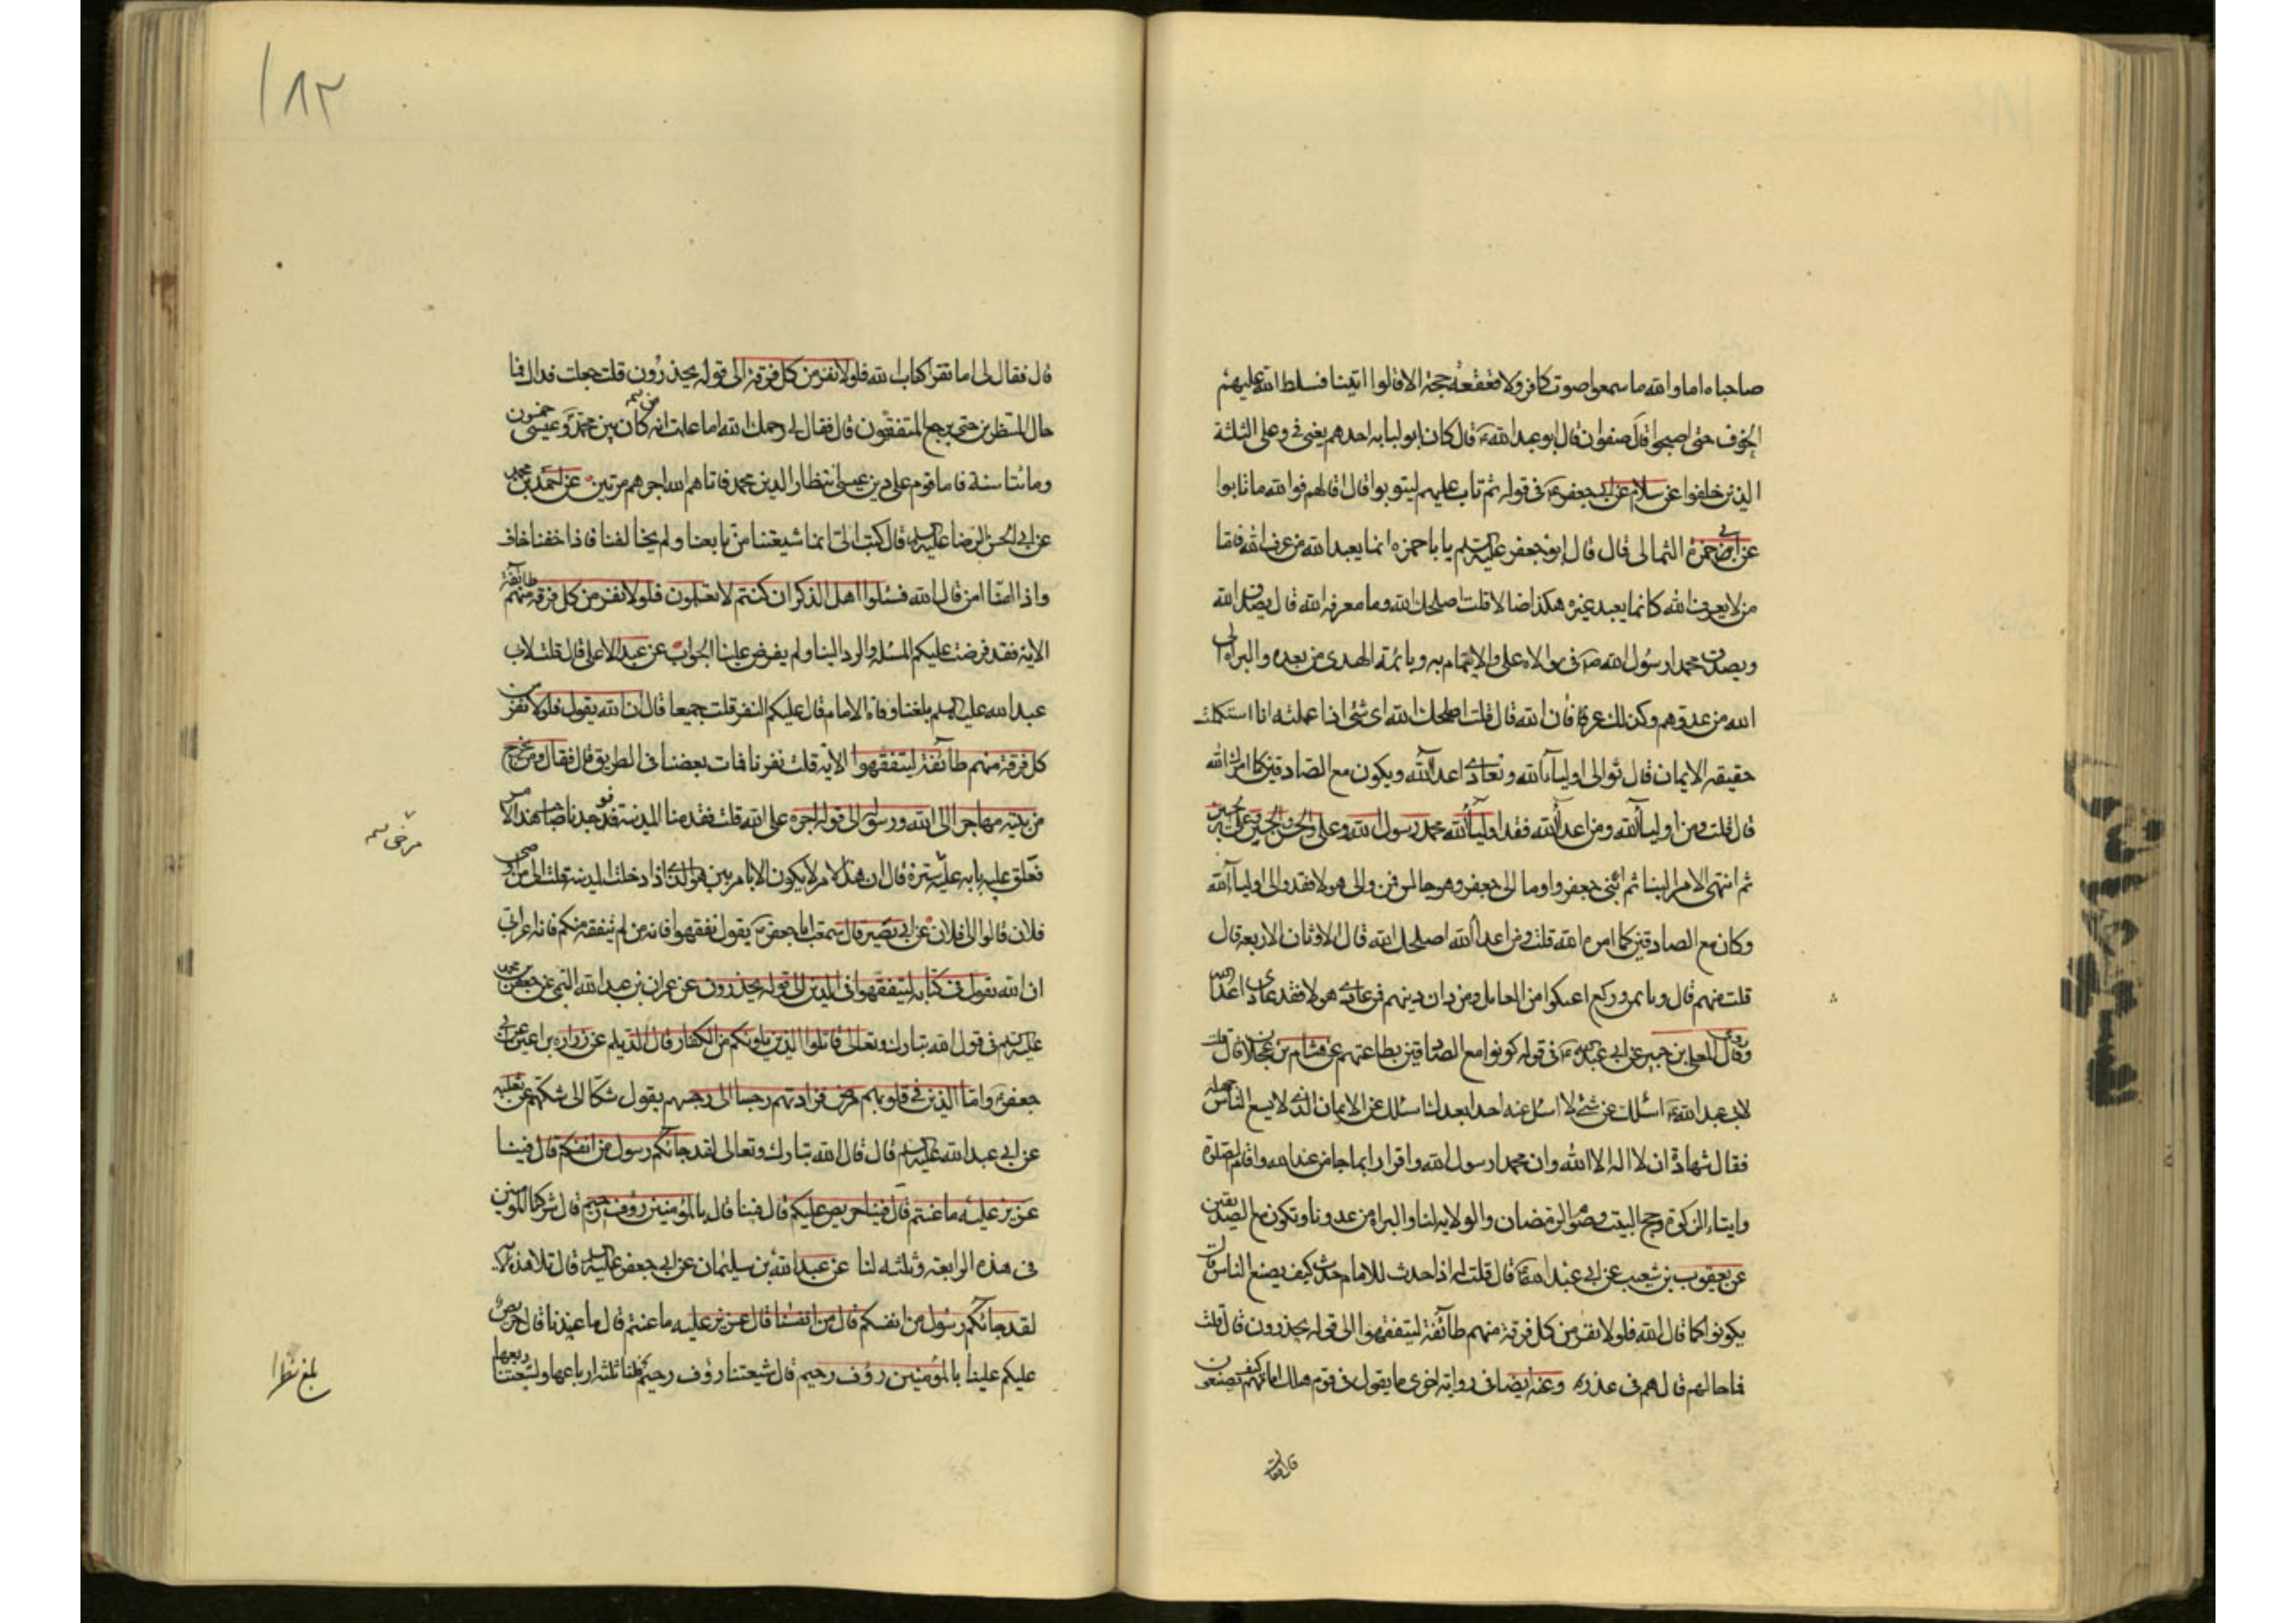 صاحباه اما والله ما سمعوا صوت كافر ولا قعقعة حجة الا قالوا اتينا فسلط الله عليهم
الخوف حتى اصبحوا قال صفوان قال ابو عبد الله ع قال كان ابو لبابه احدهم يعنى فى وعلى الثلثة
الذين خلفوا عن سلام عن ابى جعفر ع فى قوله ثم تاب عليهم ليتوبوا قال اقالهم فوالله ما تابوا
عن ابى حمزة الثمالى قال قال ابو جعفر عليه السلم يا با حمزه انما يعبد الله من عرف الله فاما
من لا يعرف الله كانما يعبد غيره هكذا ضالا قلت اصلحك الله وما معرفه الله قال يصدق الله
ويصدق محمدا رسول الله ص فى موالاه على والايتمام به وبائمه الهدى من بعده والبراه الى
الله من عدوهم وكذلك عرفان الله قال قلت اصلحك الله اى شئ اذا عملته انا استكملت
حقيقه الايمان قال توالى اولياء الله وتعادى اعداء الله ويكون مع الصادقين كما امرك الله
قال قلت ومن اولياء الله ومن اعداء الله فقد اولياء الله محمد رسول الله وعلى والحسن والحسين وعلى بن حسين
ثم انتهى الامر الينا ثم ابنى جعفر واوما الى جعفر وهو جالس فمن والى هولا فقد والى اولياء الله
وكان مع الصادقين كما امره الله قلت ومن اعداء الله اصلحك الله قال الاوثان الاربعه قال
قلت منهم قال ومن دان دينهم فمن عادى هولا فقد عادى اعداء الله
وقال المعلى بن خنيس عن ابى عبد الله ع فى قوله كونوا مع الصادقين بطاعتهم عن هشام بن عجلان قال قلت
لابى عبد الله ع اسئلك عن شئ لا اسئل عنه احدا بعدك اسئلك عن الايمان الذى لا يسع الناس جهله
فقال شهادة ان لا اله الا الله وان محمدا رسول الله واقرار بما جا من عند الله واقام الصلوة
وايتاء الزكوة وحج البيت وصوم شهر رمضان والولايه لنا والبراه من عدونا وتكون مع الصديقين
عن يعقوب بن شعيب عن ابى عبد الله ع قال قلت له اذا حدث للامام حدث كيف يصنع الناس قال
يكونوا كما قال الله فلولا نفر من كل فرقة منهم طائفة ليتفقهوا الى قوله يحذرون قال قلت
فما حالهم قال هم فى عذر وعنه ايضا فى روايه اخرى ما يقول فى قوم هلك امامهم كيف يصنعون
قال فقال
١٨٣
قال فقال لى اما تقرا كتاب الله فلولا نفر من كل فرقة الى قوله يحذرون قلت جعلت فداك فما
حال المنتظرين حتى يرجع المتفقهون قال فقال لى رحمك الله اما علمت انه كان بين محمد وعيسى خمسون
ومائتا سنة فمات قوم على دين عيسى انتظارا لدين محمد فاتاهم الله اجرهم مرتين عن احمد بن محمد
عن ابى الحسن الرضا عليه السلم قال كتب الى انما شيعتنا من تابعنا ولم يخالفنا فاذا خفنا خاف
واذا امنا امن قال الله فسئلوا اهل الذكر ان كنتم لا تعلمون فلولا نفر من كل فرقه منهم طائفة
الايه فقد فرضت عليكم المسئله والرد الينا ولم يفرض علينا الجواب عن عبد الاعلى قال قلت لابى
عبد الله عليه السلم بلغنا وفاة الامام قال عليكم النفر قلت جميعا قال ان الله يقول فلولا نفر من
كل فرقة منهم طائفة ليتفقهوا الايه قلت نفرنا فمات بعضنا فى الطريق قال فقال ومن يخرج
من بيته مهاجرا الى الله ورسوله الى قوله اجره على الله قلت فقدمنا المدينه فوجدنا صاحب هذا الامر
مغلق عليه بابه مرخى ستره قال ان هذا الامر لا يكون الا بامر بين هو الذى اذا دخلت المدينه قلت الى من اوصى
مرخى
فلان قالوا الى فلان عن ابى بصير قال سمعت ابا جعفر ع يقول تفقهوا فانه من لم يتفقه منكم فانه اعرابى
ان الله يقول فى كتابه ليتفقهوا فى الدين الى قوله يحذرون عن عمران بن عبد الله التيمى عن جعفر بن محمد
عليه السلم فى قول الله تبارك وتعالى قاتلوا الذين يلونكم من الكفار قال الديلم عن زراره بن اعين عن ابى
جعفر ع واما الذين فى قلوبهم مرض فزادتهم رجسا الى رجسهم يقول شكا الى شكهم عن ثعلبه
عن ابى عبد الله عليه السلم قال قال الله تبارك وتعالى لقد جائكم رسول من انفسكم قال فينا
عزيز عليه ما عنتم قال فينا حريص عليكم قال فينا قال بالمؤمنين رؤف رحيم قال شركنا المؤمنين
فى هذه الرابعة وثلثه لنا عن عبد الله بن سليمان عن ابى جعفر عليه السلم قال تلا هذه الآيه
لقد جائكم رسول من انفسكم قال من انفسنا قال عزيز عليه ما عنتم قال ما عنتنا قال حريص
عليكم علينا بالمؤمنين رؤف رحيم قال شيعتنا رؤف رحيم فلنا ثلثه ارباعها ولشيعتنا ربعها
بلغ نظرا